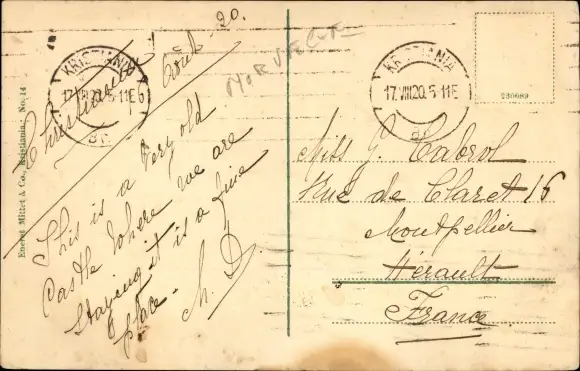 Christiania
Août - 20.
This is a very old
Castle where we are
staying it is a fine
place - M. D.
NORVEGE
KRISTIANIA
17.VIII.20. 5-11E
Br.
KRISTIANIA
17.VIII.20. 5-11E
Br.
230689
Miss G. Cabrol
Rue de Claret 16
Montpellier
Hérault
France
Eneret Mittet & Co., Kristiania: No. 14